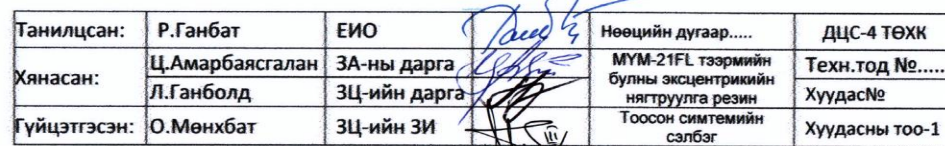 Танилцсан: Р.Ганбат ЕИО Нөөцийн дугаар..... ДЦС-4 ТӨХК
Хянасан: Ц.Амарбаясгалан ЗА-ны дарга МУМ-21FL тээрмийн булны эксцентрикийн нягтруулга резин Техн.тод №.....
Л.Ганболд ЗЦ-ийн дарга Хуудас№
Гүйцэтгэсэн: О.Мөнхбат ЗЦ-ийн ЗИ Тоосон симтемийн сэлбэг Хуудасны тоо-1